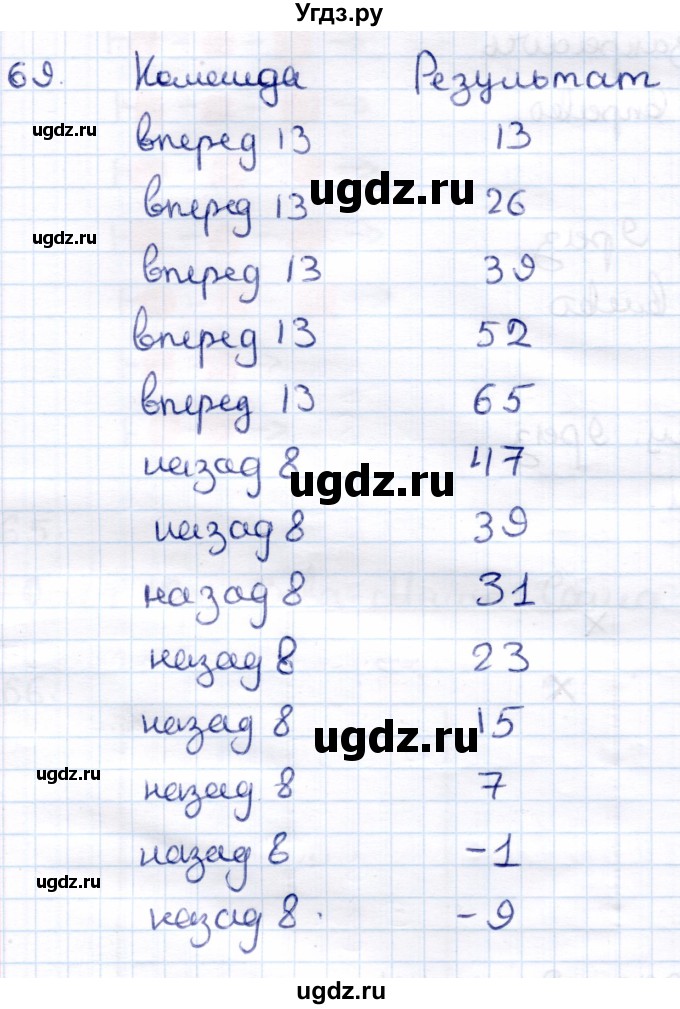 Угдз.ру
69. Команда Результат
ugdz.ru
вперед 13 13
ugdz.ru
вперед 13 26
ugdz.ru
вперед 13 39
вперед 13 52
вперед 13 65
назад 8 47
ugdz.ru
назад 8 39
назад 8 31
назад 8 23
назад 8 15
ugdz.ru
ugdz.ru
назад 8 7
назад 8 -1
ugdz.ru
назад 8 -9
ugdz.ru